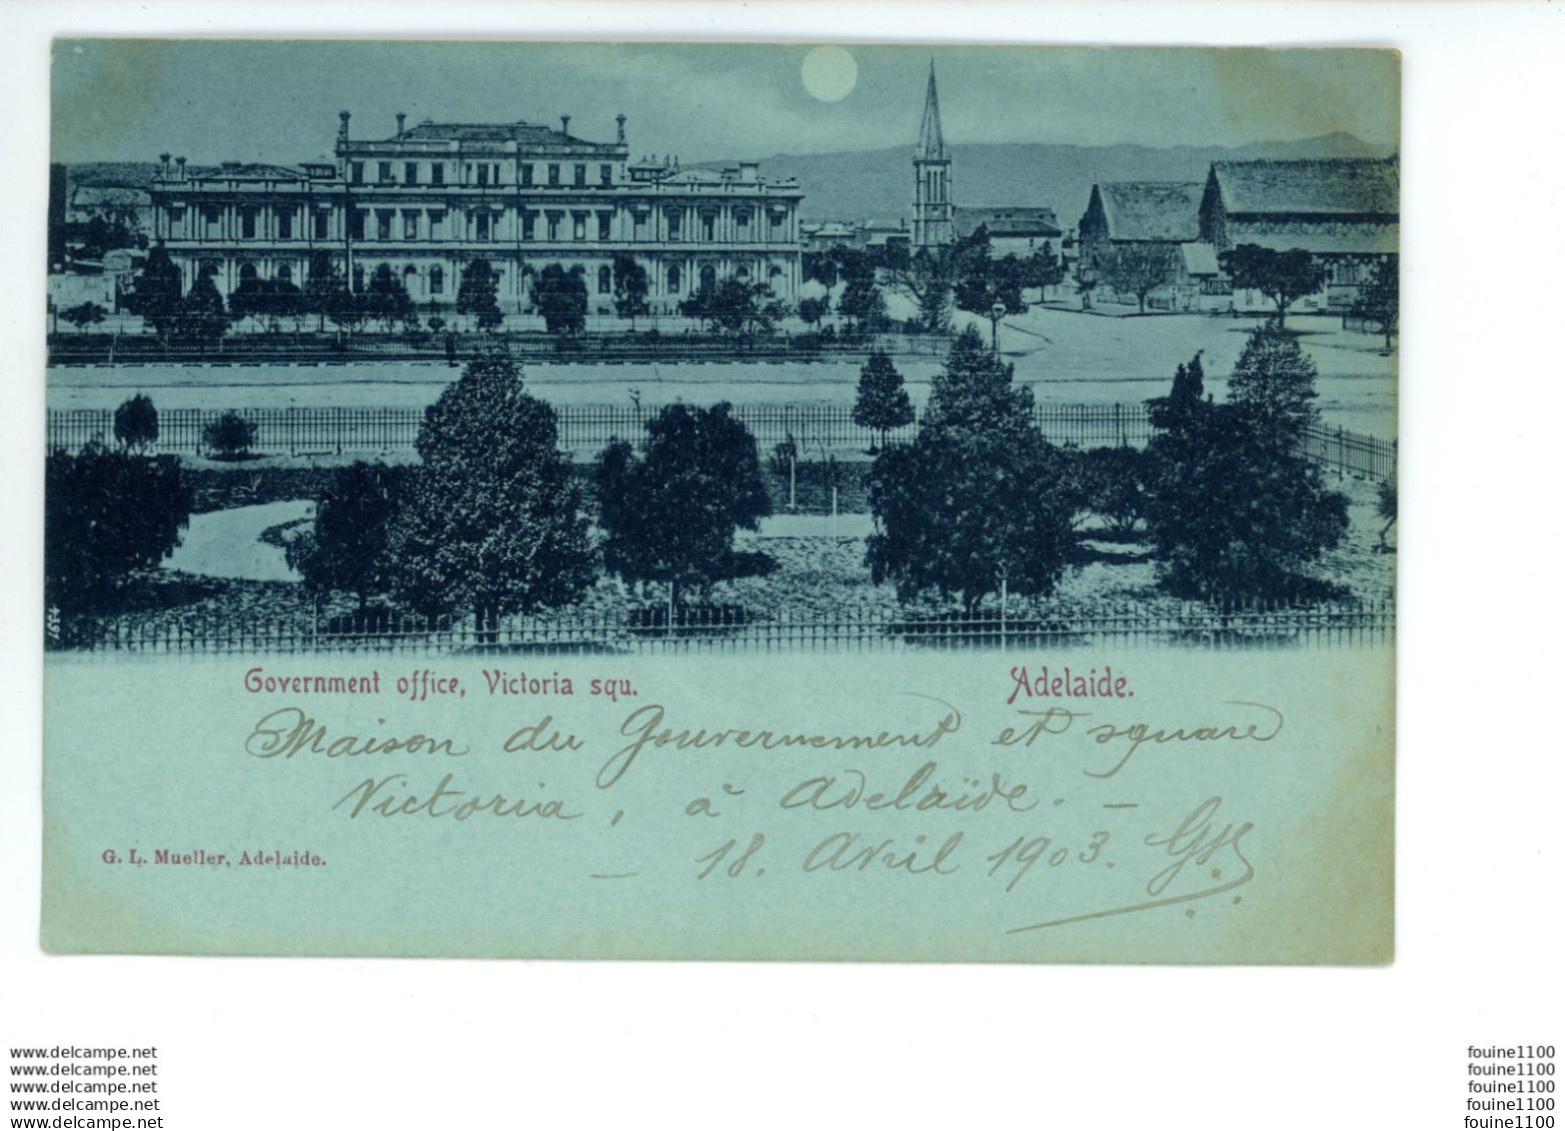 1654
Government office, Victoria squ. Adelaide.
Maison du Gouvernement et square
Victoria, à Adelaïde. —
G. L. Mueller, Adelaide.
— 18. Avril 1903.
www.delcampe.net
www.delcampe.net
www.delcampe.net
www.delcampe.net
www.delcampe.net
fouine1100
fouine1100
fouine1100
fouine1100
fouine1100